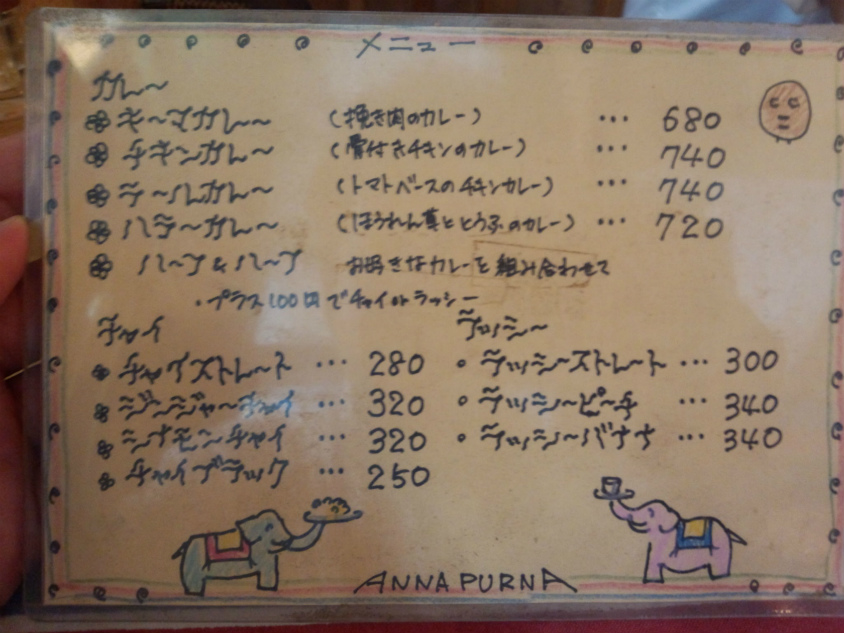 メニュー
カレー
キーマカレー (挽き肉のカレー) ... 680
チキンカレー (骨付きチキンのカレー) ... 740
ラールカレー (トマトベースのチキンカレー) ... 740
ハラーカレー (ほうれん草ととうふのカレー) ... 720
ハーフ&ハーフ お好きなカレーを組み合わせて
・プラス100円でチャイorラッシー
チャイ
チャイストレート ... 280
ジンジャーチャイ ... 320
シナモンチャイ ... 320
チャイブラック ... 250
ラッシー
ラッシーストレート ... 300
ラッシーピーチ ... 340
ラッシーバナナ ... 340
ANNAPURNA